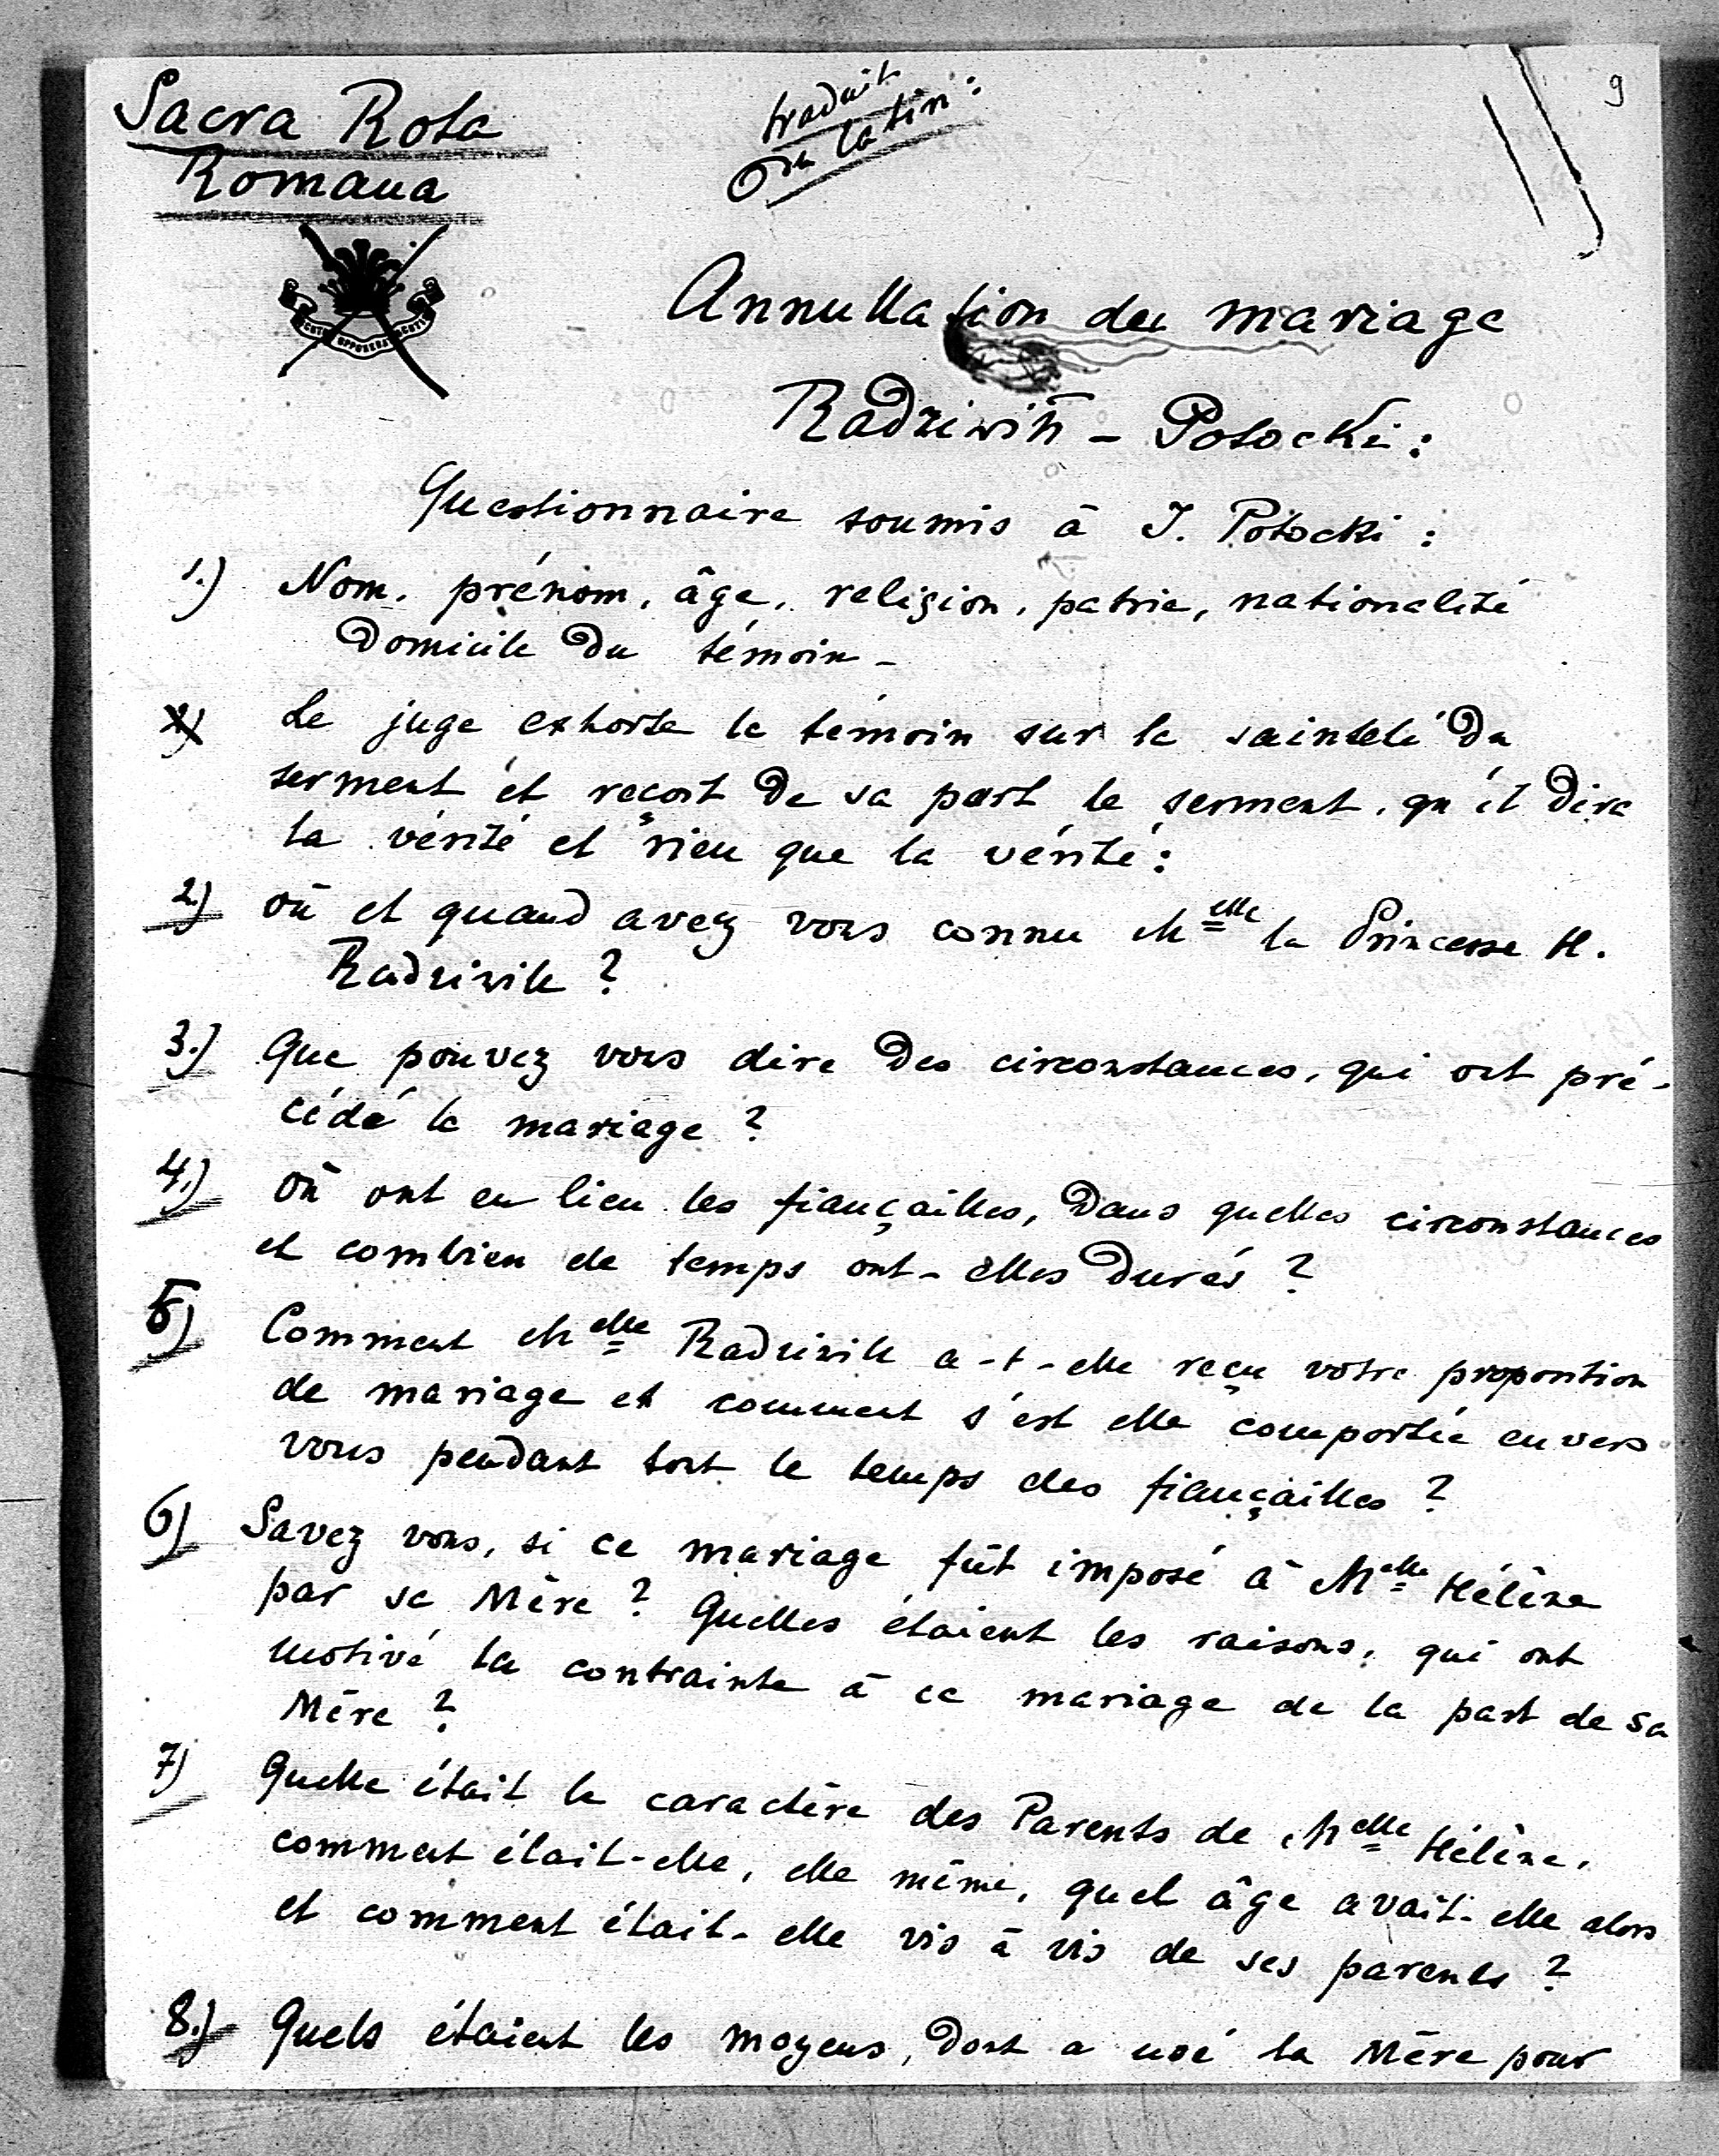 Sacra Rota
Romana
traduit
du latin:
9
Annullation du mariage
Radziwiłł - Potocki:
Questionnaire soumis à J. Potocki:
1.) Nom, prénom, âge, religion, patrie, nationalité
Domicile du témoin -
Le juge exhorte le témoin sur la sainteté du
serment et reçoit de sa part le serment, qu'il dira
la vérité et rien que la vérité:
2.) Où et quand avez vous connu Melle la Princesse H.
Radziwill?
3.) Que pouvez vous dire des circonstances, qui ont pré-
cédé le mariage?
4.) Où ont eu lieu les fiançailles, dans quelles circonstances
et combien de temps ont-elles durés?
5) Comment Melle Radziwill a-t-elle reçu votre proposition
de mariage et comment s'est elle comportée envers
vous pendant tout le temps des fiançailles?
6) Savez vous, si ce mariage fût imposé à Melle Hélène
par sa Mère? Quelles étaient les raisons, qui ont
motivé la contrainte à ce mariage de la part de sa
Mère?
7) Quelle était le caractère des Parents de Melle Hélène,
comment était-elle, elle même, quel âge avait-elle alors
et comment était-elle vis à vis de ses parents?
8.) Quels étaient les moyens, dont a usé la Mère pour